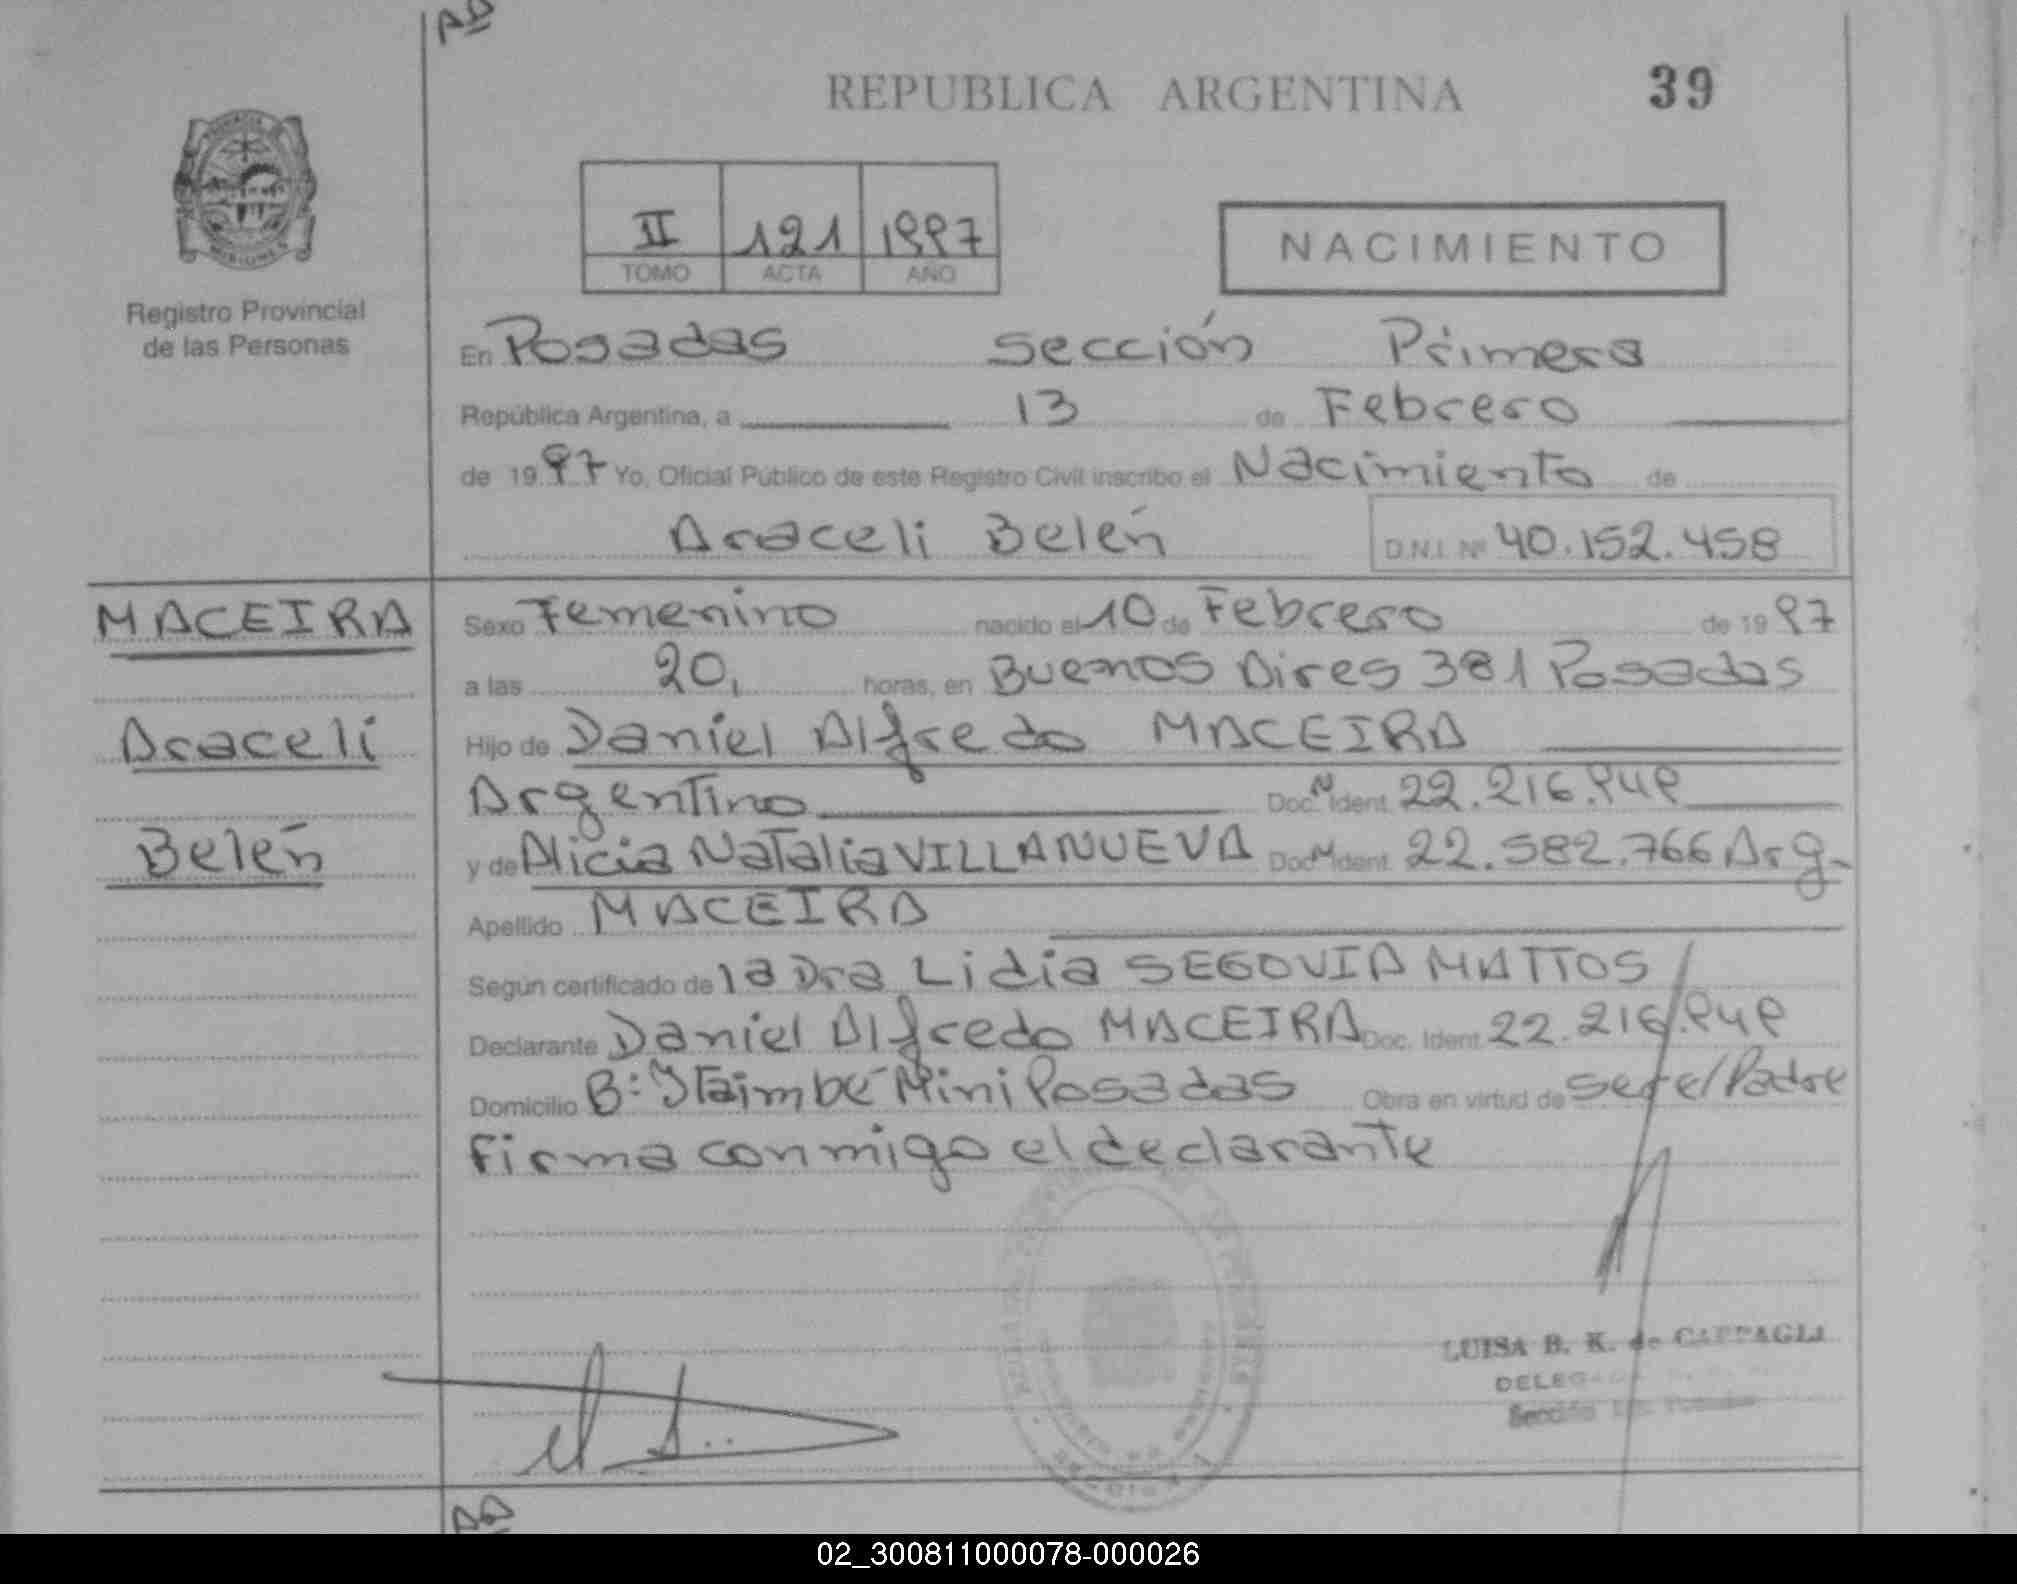 AD
REPUBLICA ARGENTINA 39
II 121 1997
TOMO ACTA AÑO
NACIMIENTO
Registro Provincial
de las Personas
En Posadas Sección Primera
República Argentina, a 13 de Febrero
de 1997 Yo, Oficial Público de este Registro Civil inscribo el Nacimiento de
Araceli Belén D.N.I. Nº 40.152.458
MACEIRA
Araceli
Belén
Sexo Femenino nacido el 10 de Febrero de 1997
a las 20, horas, en Buenos Aires 381 Posadas
Hijo de Daniel Alfredo MACEIRA
Argentino Doc. N Ident. 22.216.949
y de Alicia Natalia VILLANUEVA Doc. N Ident. 22.582.766 Arg.
Apellido MACEIRA
Según certificado de la Dra Lidia SEGOVIA MATTOS
Declarante Daniel Alfredo MACEIRA Doc. Ident. 22.216.949
Domicilio B: Itaimbé Mini Posadas Obra en virtud de ser el Padre
Firma conmigo el declarante
LUISA B. K. de
Sección
02_300811000078-000026